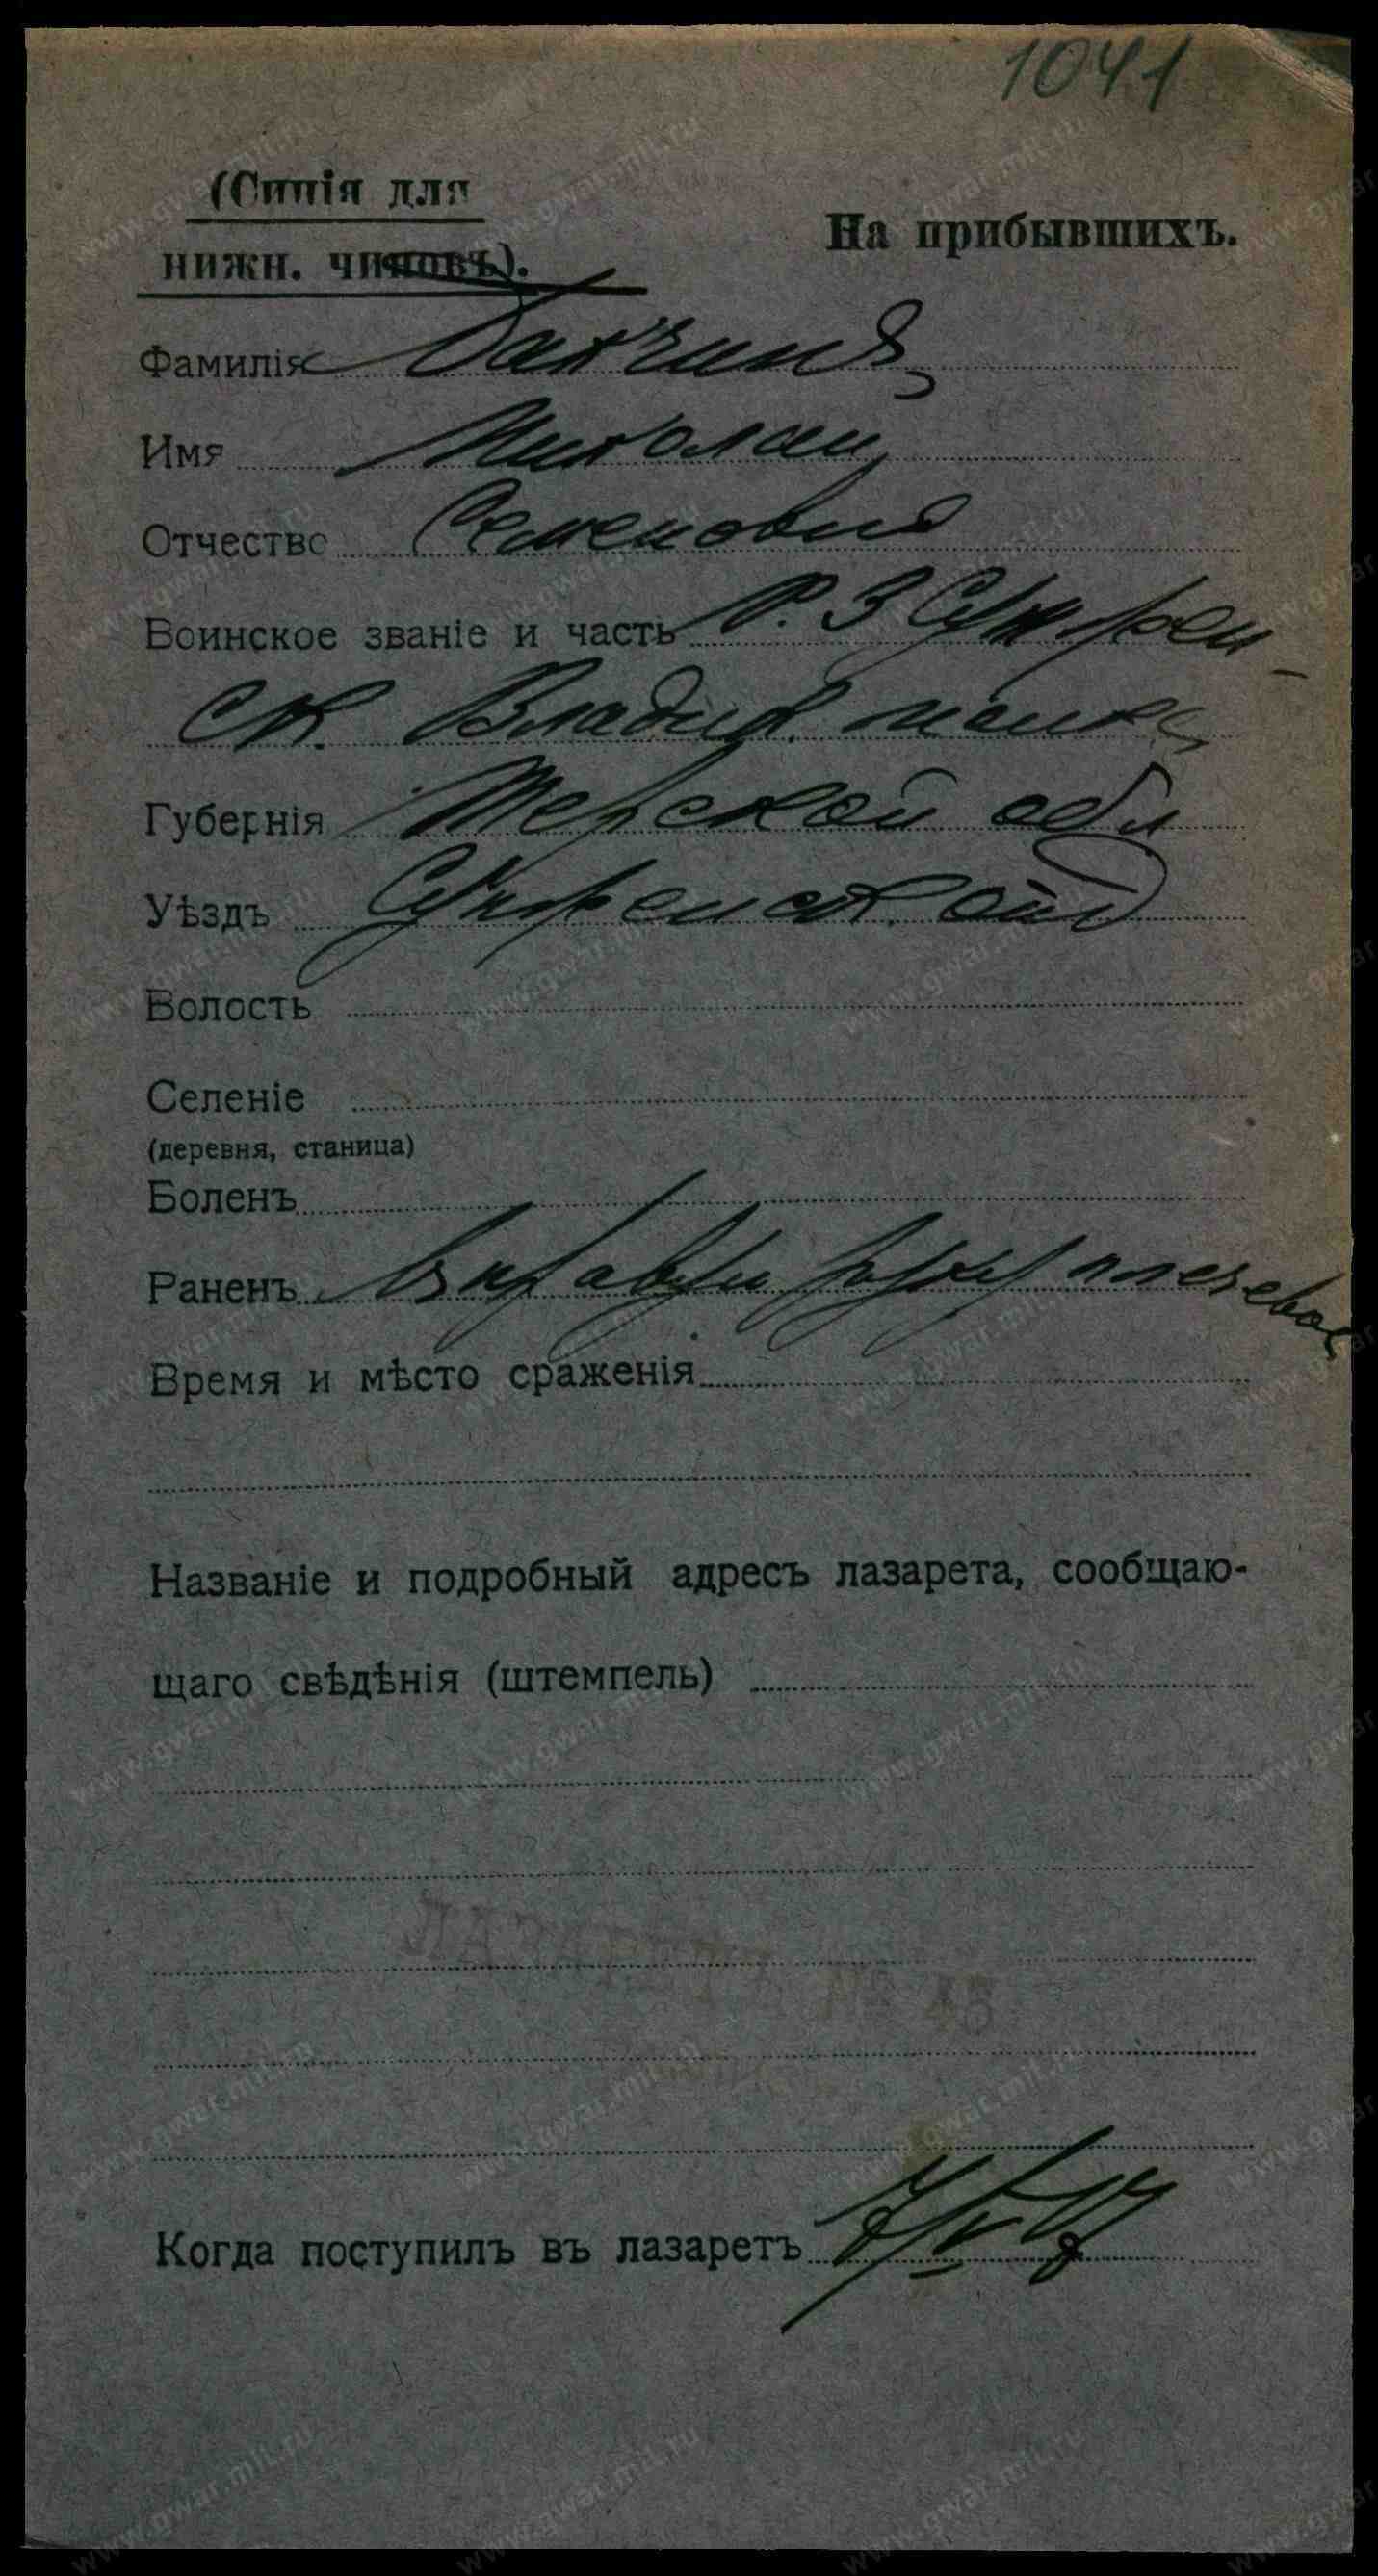 1041
(Синія для
нижн. чиновъ).
На прибывшихъ.
Фамилія Бакчинъ
Имя Николай
Отчество Семеновичъ
Воинское званіе и часть Р. 3 Сунжен-
ск. Владик. полка
Губернія Терской обл
Уѣздъ Сунженской
Волость
Селеніе
(деревня, станица)
Боленъ
Раненъ В правую руку плечевое
Время и мѣсто сраженія
Названіе и подробный адресъ лазарета, сообщаю-
щаго свѣдѣнія (штемпель)
ЛАЗАРЕТЪ № 48
Когда поступилъ въ лазаретъ